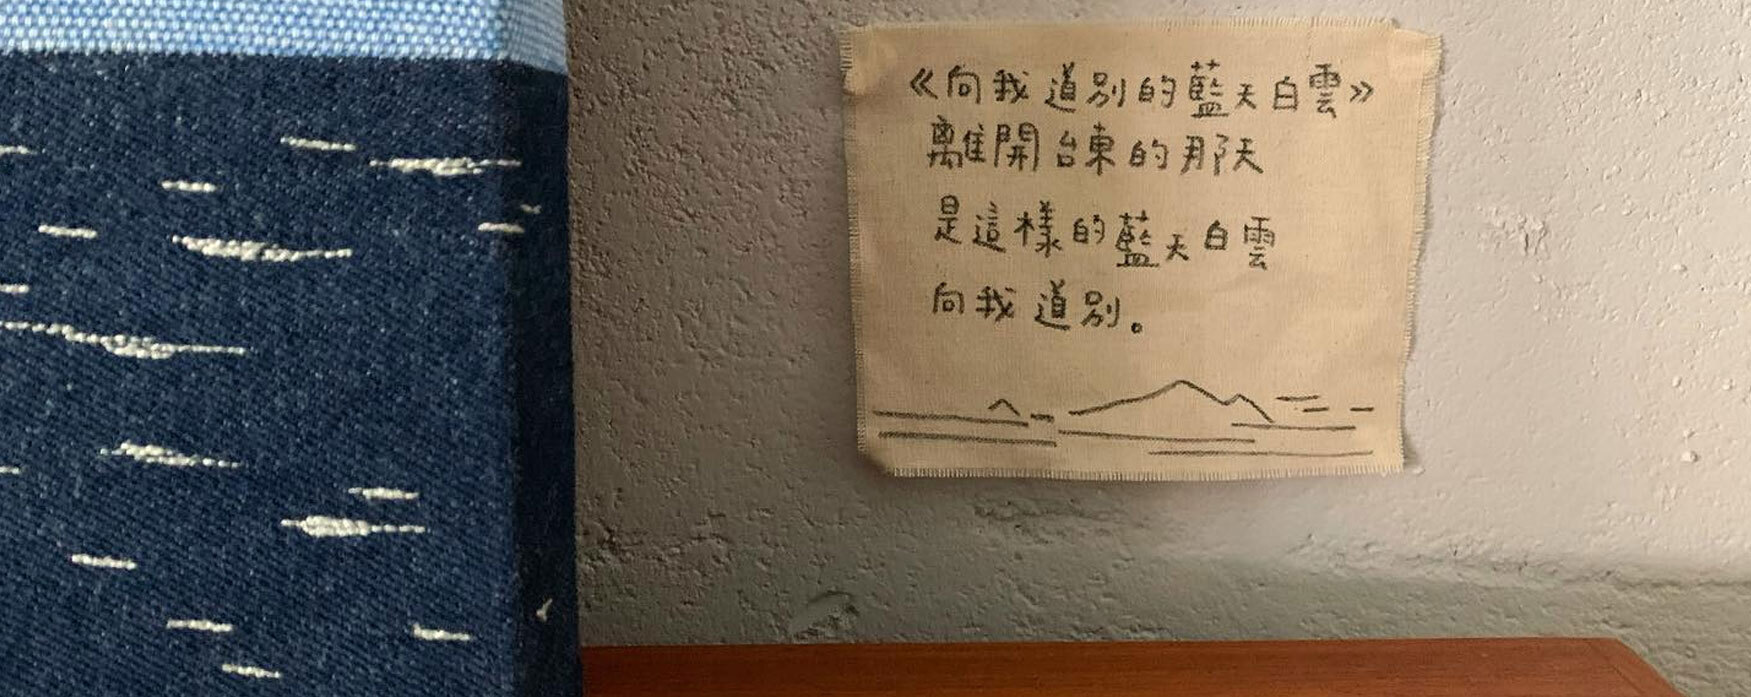 《向我道別的藍天白雲》
離開台東的那天
是這樣的藍天白雲
向我道別。